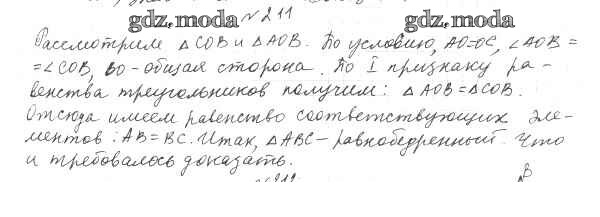 gdz.moda №211 gdz.moda
Рассмотрим △COB и △AOB. По условию, AO=OC, ∠AOB=
=∠COB, BO-общая сторона. По I признаку ра-
венства треугольников получим: △AOB=△COB.
Отсюда имеем равенство соответствующих эле-
ментов: AB=BC. Итак, △ABC-равнобедренный. Что
и требовалось доказать.
B